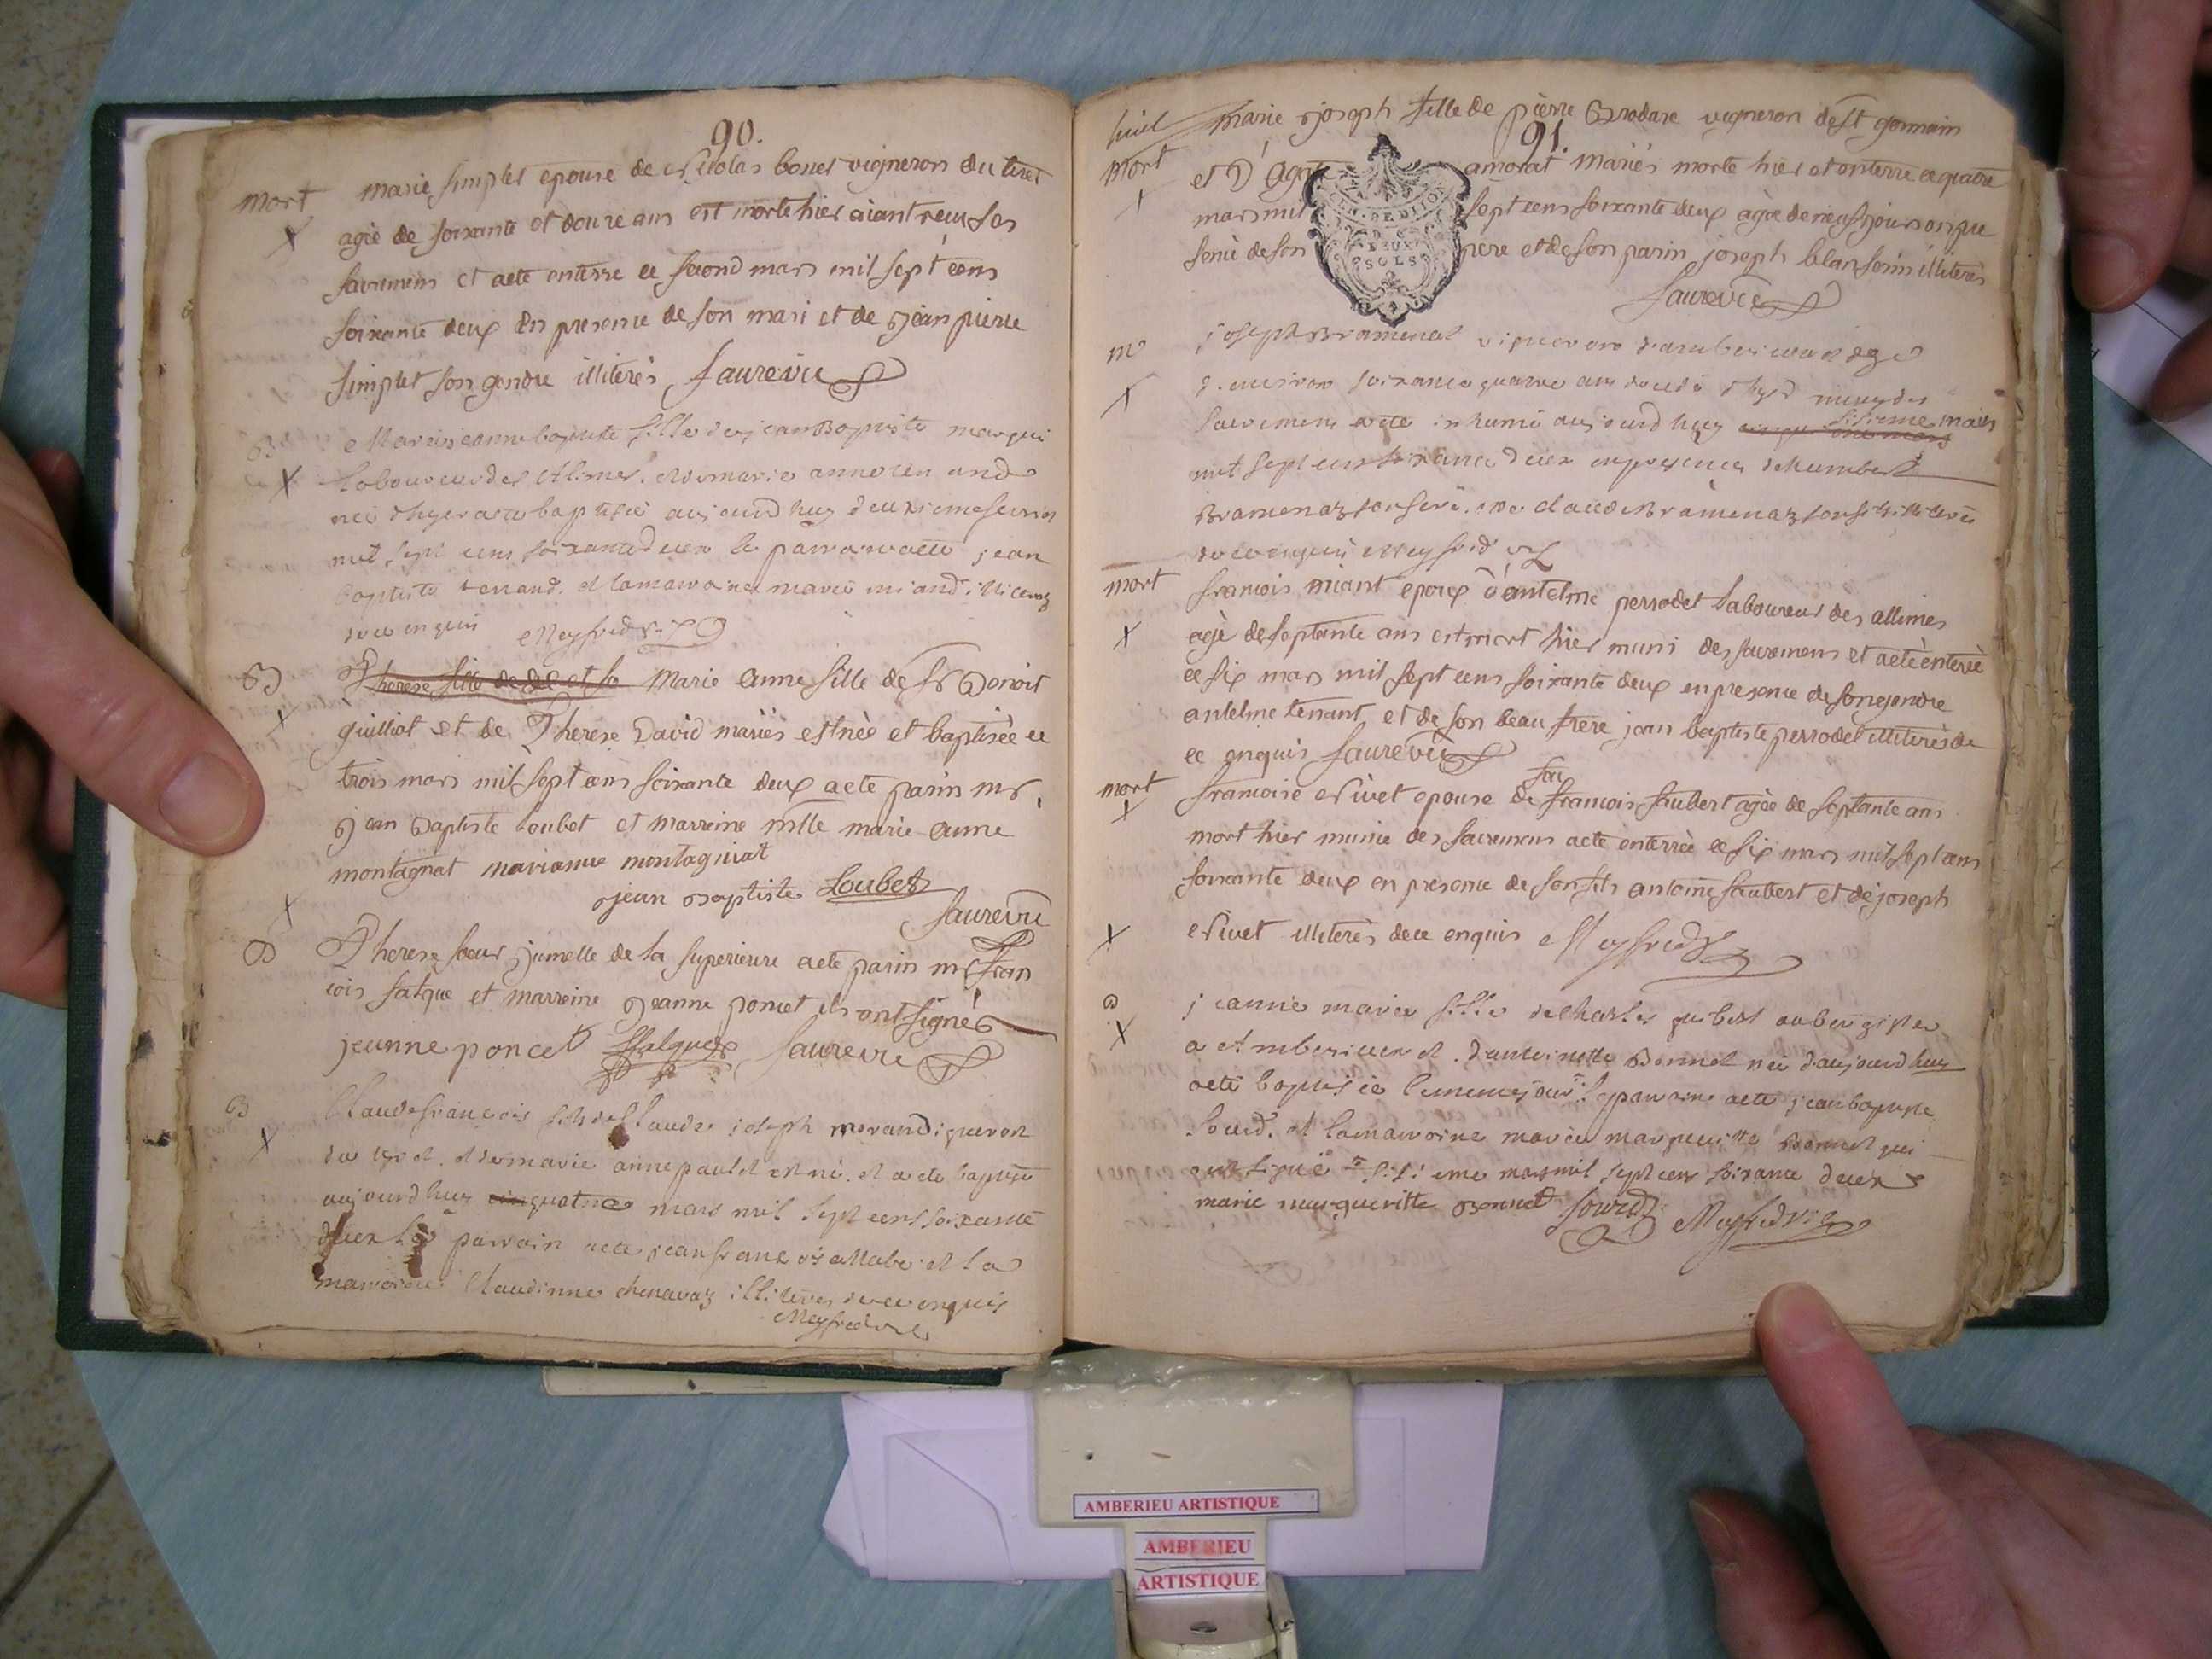 90.
mort marie simplet epouse de Nicolas bonet vigneron du tiret
agée de soixante et douze ans est morte hier aiant receu ses
sacremens et a eté enterré ce second mars mil sept cens
soixante deux en presence de son mari et de jean pierre
simplet son gendre illiterés Saurevie
B Marie jeanne baptiste fille de jean Baptiste
laboureur des Alimes et de marie anne
née d'hyer a ete baptisée aujourd huy deuxieme
mil sept cens soixante deux le parrain a ete jean
baptiste tenand et la marraine marie
de ce enquis Meyfred
B Therese fille de Marie Anne fille de Sr Benoit
guilliot et de Therese David mariés est née et baptisée ce
trois mars mil sept cens soixante deux a ete parin mr
jean Baptiste Loubet et marreine mlle marie anne
montagnat marianne montagniat
jean Baptiste Loubet
Saurevie
B Therese soeur jumelle de la superieure a ete parin mr fran
cois falque et marreine jeanne poncet ils ont signés
jeunne poncet ffalque Saurevie
B Claude francois fils de Claude joseph morand vigneron
du tiret et de marie anne paulet est né et a ete baptisé
aujourd huy quatre mars mil sept cens soixante
deux le parrain a ete jean francois et la
marraine Claudinne chenavaz illiteres de ce enquis
Meyfred
91.
mort marie joseph fille de pierre Brodare vigneron de st germain
et d'Agate amorat mariés morte hier et enterré ce quatre
mars mil sept cens soixante deux agée de neuf jours en pre
sence de son pere et de son parin joseph illiterés
GEN. DE DIJON
DEUX
SOLS
Saurevie
m joseph Bramenat vigneron d'amberieu agé
d'environ soixante quatre ans decedé d'hyer muny des
sacremens a ete inhumé aujourd huy sisieme mars
mil sept cens soixante deux en presence de humbert
Bramenaz son frere et de claude Bramenaz son fils illiterés
de ce enquis Meyfred
mort francois miant epoux d'antelme perrodet laboureur des allimes
agé de septante ans est mort hier muni des sacremens et a eté enterré
ce six mars mil sept cens soixante deux en presence de son gendre
antelme tenant et de son beau frere jean baptiste perrodet illiterés de
ce enquis Saurevie
mort francoise Nivet epouse de feu francois faubert agée de septante ans
mort hier munie des sacremens a eté enterrée ce six mars mil sept cens
soixante deux en presence de son fils antoine faubert et de joseph
Nivet illiterés de ce enquis Meyfred
B jeanne marie fille de Charles guibert aubergiste
a Amberieux et d'antoinette Bonnet née d'aujourd huy
a ete baptisée le meme jour le parrain a ete jean baptiste
Sourd et la marraine marie marguerite Bonnet qui
ont signé sisieme mars mil sept cens soixante deux
marie margueritte Bonnet Sourd Meyfred
AMBERIEU ARTISTIQUE
AMBERIEU
ARTISTIQUE